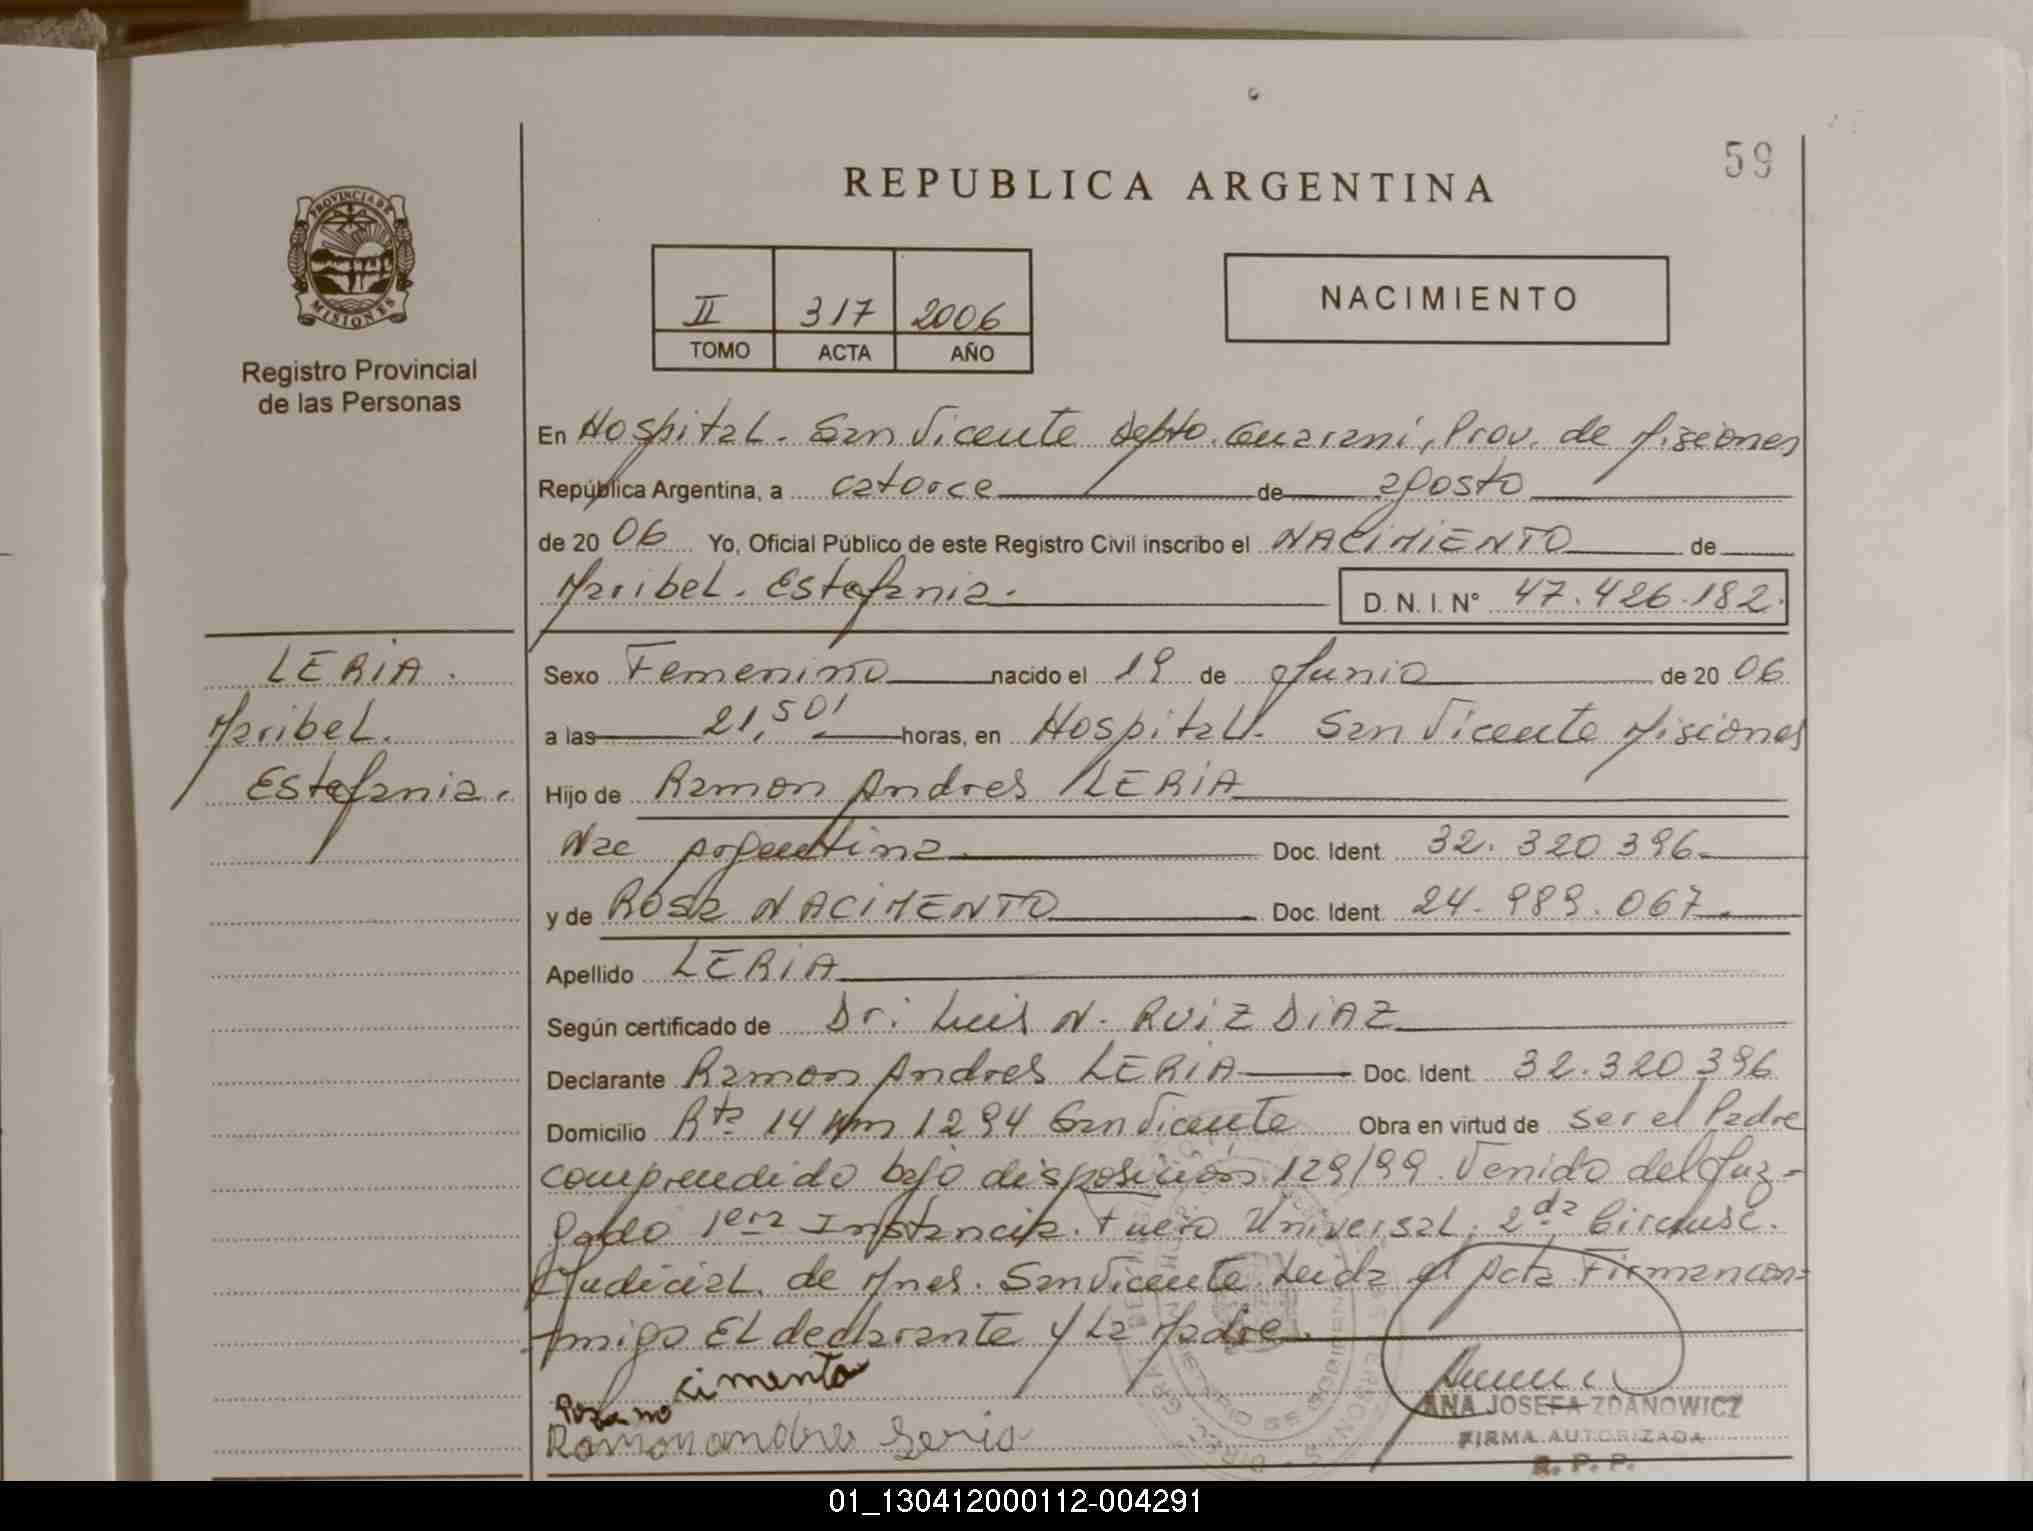 59
REPUBLICA ARGENTINA
PROVINCIA DE
MISIONES
Registro Provincial
de las Personas
II 317 2006
TOMO ACTA AÑO
NACIMIENTO
En Hospital. San Vicente Depto. Guarani, Prov. de Misiones
República Argentina, a catorce de agosto
de 20 06 Yo, Oficial Público de este Registro Civil inscribo el NACIMIENTO de
Maribel. Estefania. D. N. I. N° 47.426.182.
LERIA.
Maribel.
Estefania.
Sexo Femenino nacido el 19 de Junio de 20 06
a las 21,50' horas, en Hospital. San Vicente Misiones
Hijo de Ramon Andres LERIA
Nac Argentina Doc. Ident. 32. 320 396.
y de Rosa NACIMENTO Doc. Ident. 24. 989. 067.
Apellido LERIA
Según certificado de Dr. Luis N. RUIZ DIAZ
Declarante Ramon Andres LERIA Doc. Ident. 32.320 396
Domicilio Rta 14 Km 1294 San Vicente Obra en virtud de ser el Padre
comprendido bajo disposición 129/99. Venido del Juz-
gado 1era Instancia. Fuero Universal. 2da Circunsc.
Judicial. de Mnes. San Vicente. Leida el Acta Firman con-
migo El declarante y La Madre.
cimento
Rosa na
Ramon andre Leria
ANA JOSEFA ZDANOWICZ
FIRMA AUTORIZADA
R. P. P.
01_130412000112-004291